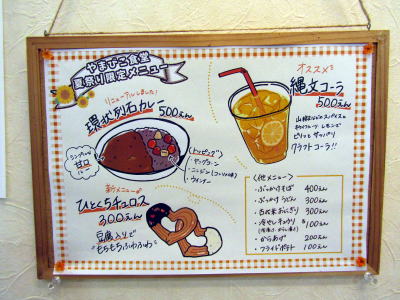 やまびこ食堂
夏祭り限定メニュー
リニューアルしました！
環状列石カレー
500えん
シンプルな
甘口
〈トッピング〉
・ヤングコーン
・ウインナー
新メニュー
ひとくちチュロス
300えん
豆腐入りで
"もちもちふわふわ"
オススメ！
縄文コーラ
500えん
レモンで
ピリッとサッパリ
クラフトコーラ!!
〈他メニュー〉
・ぶっかけそば 400えん
・ぶっかけうどん 300えん
・古代米おにぎり 300えん
・冷やしキュウリ 100えん
・からあげ 200えん
・フライドポテト 100えん